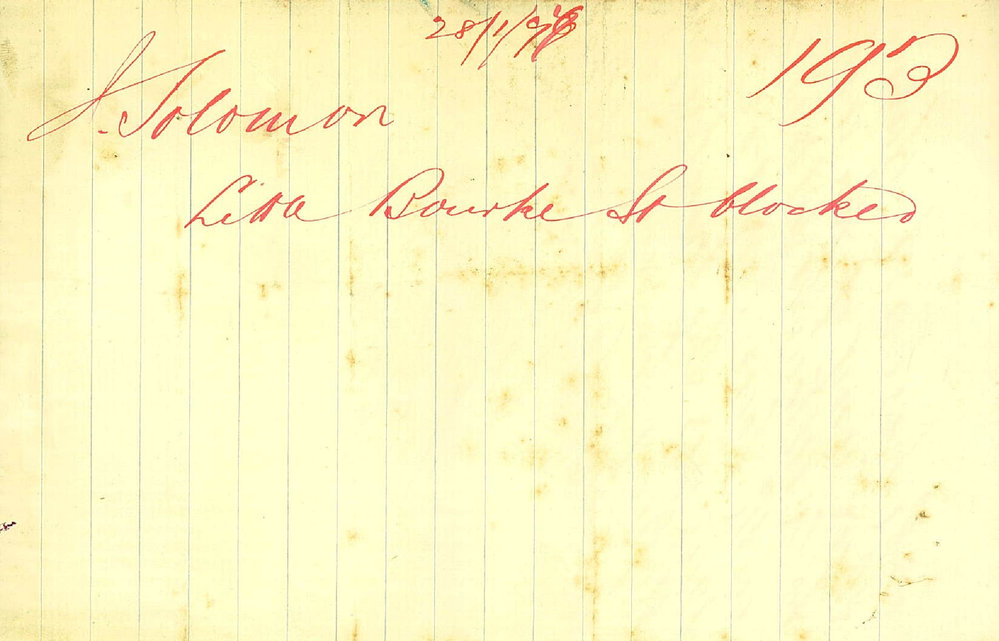 28/1/98
193
J. Solomon
Little Bourke St blocked